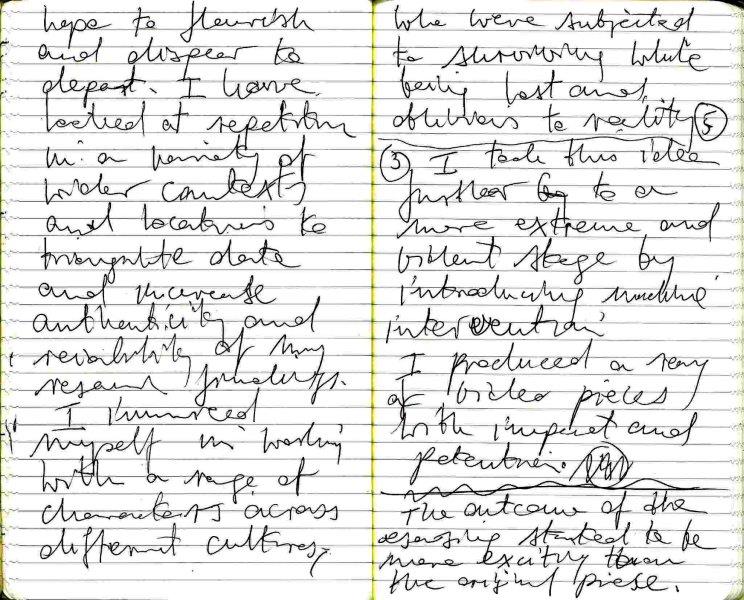 hope to flourish
and dispear to
depart. I have
looked at repetition
in a variety of
wider contexts
and locations to
triangulte data
and increase
authenticity and
reliability of my
research findings.
I immersed
myself in working
with a range of
characters across
different cultures,
who were subjected
to surviving while
being lost and
oblivious to reality ⑤
③ I took this idea
further to a
more extreme and
violent stage by
introducing machine
intervention
I produced a
of video pieces
with impact and
potention.
The outcome of the
started to be
more exciting than
the original piese.